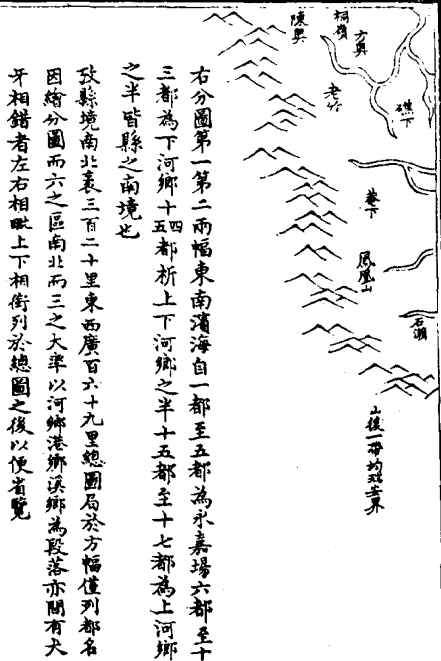 方奧
桐嶺
陳奧
礁下
老竹
菴下
鳳凰山
石瀨
山後一帶均瑞安界
右分圖第一第二兩幅東南濱海自一都至五都為永嘉場六都至十
三都為下河鄉十四五都析上下河鄉之半十五都至十七都為上河鄉
之半皆縣之南境也
攷縣境南北袤三百二十里東西廣百六十九里總圖局於方幅僅列都名
因繪分圖而六之區南北而三之大率以河鄉港鄉溪鄉為段落亦間有犬
牙相錯者左右相毗上下相銜列於總圖之後以便省覽